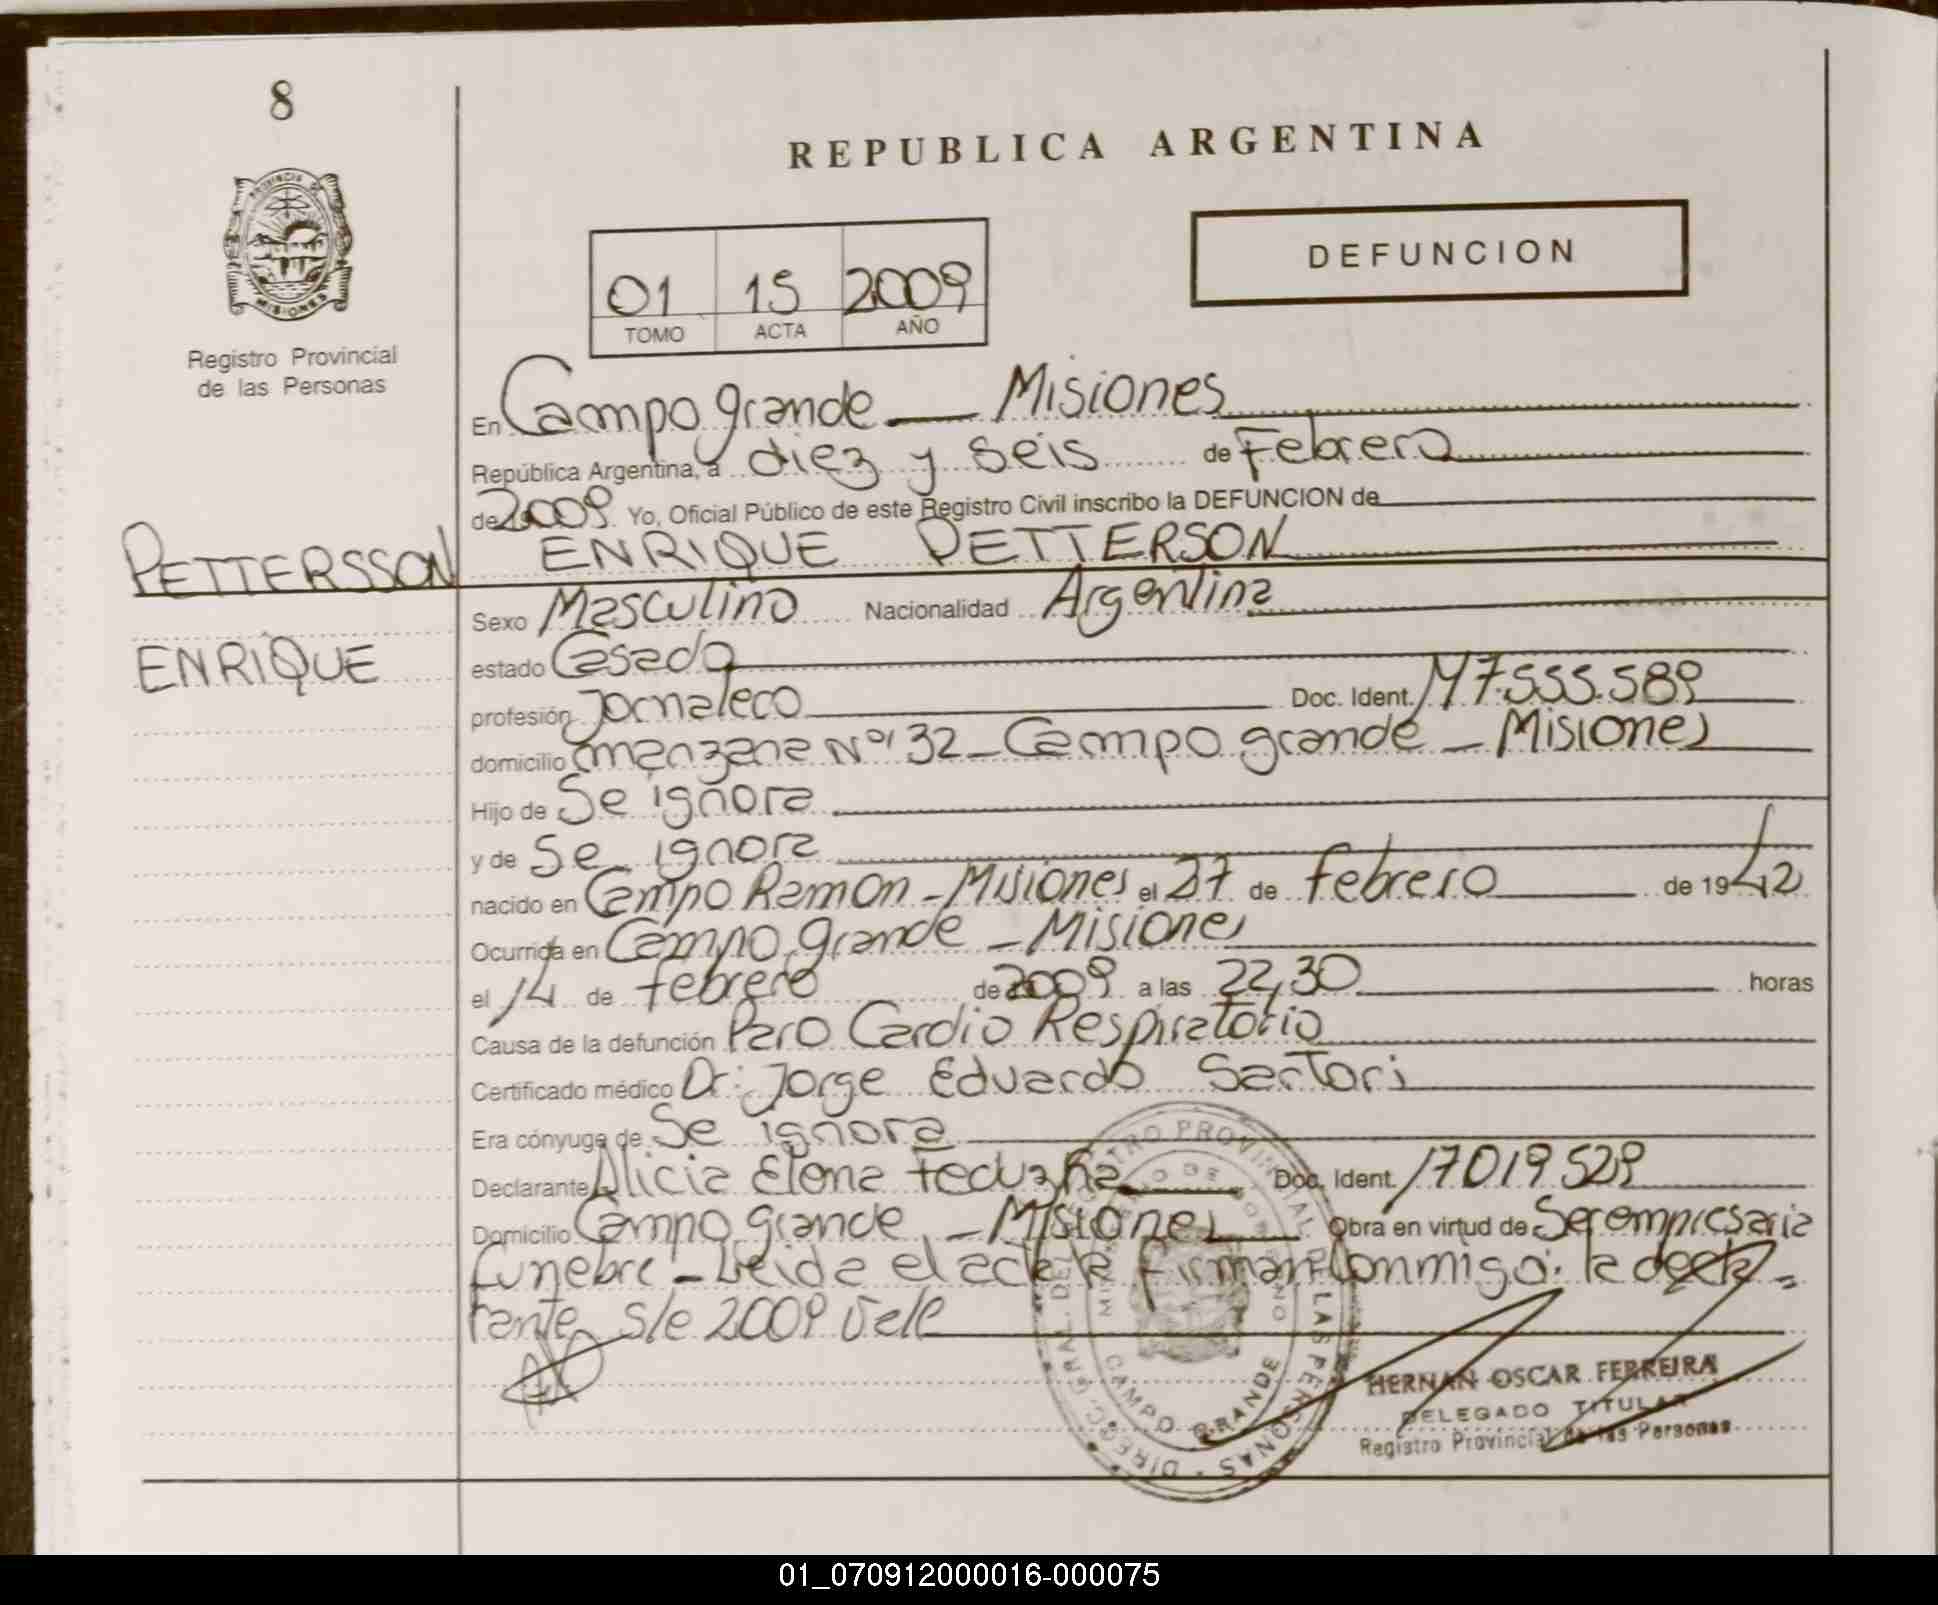 8
REPUBLICA ARGENTINA
DEFUNCION
PROVINCIA DE
MISIONES
Registro Provincial
de las Personas
01 15 2009
TOMO ACTA AÑO
En Campo grande — Misiones
República Argentina, a diez y seis de Febrero
de 2009 Yo, Oficial Público de este Registro Civil inscribo la DEFUNCION de
PETTERSSON
ENRIQUE
ENRIQUE PETTERSON
Sexo Masculino Nacionalidad Argentina
estado Casado
profesión Jornalero Doc. Ident. M7.555.589
domicilio manzana Nº 32 - Campo grande - Misiones
Hijo de Se ignora
y de Se ignora
nacido en Campo Ramon - Misiones el 27 de febrero de 1942
Ocurrida en Campo grande - Misiones
el 14 de febrero de 2009 a las 22,30 horas
Causa de la defunción Paro Cardio Respiratorio
Certificado médico Dr: Jorge Eduardo Sartori
Era cónyuge de Se ignora
Declarante Alicia Elena Doc. Ident. 17019529
Domicilio Campo grande - Misiones Obra en virtud de Ser empresaria
funebre - Leida el acta la firman Conmigo: la decla=
rante s/e 2009 Vale
DIREC. GRAL. DEL REGISTRO PROVINCIAL DE LAS PERSONAS
MINISTERIO DE GOBIERNO
CAMPO GRANDE
HERNAN OSCAR FERREIRA
DELEGADO TITULAR
Registro Provincial de las Personas
01_070912000016-000075